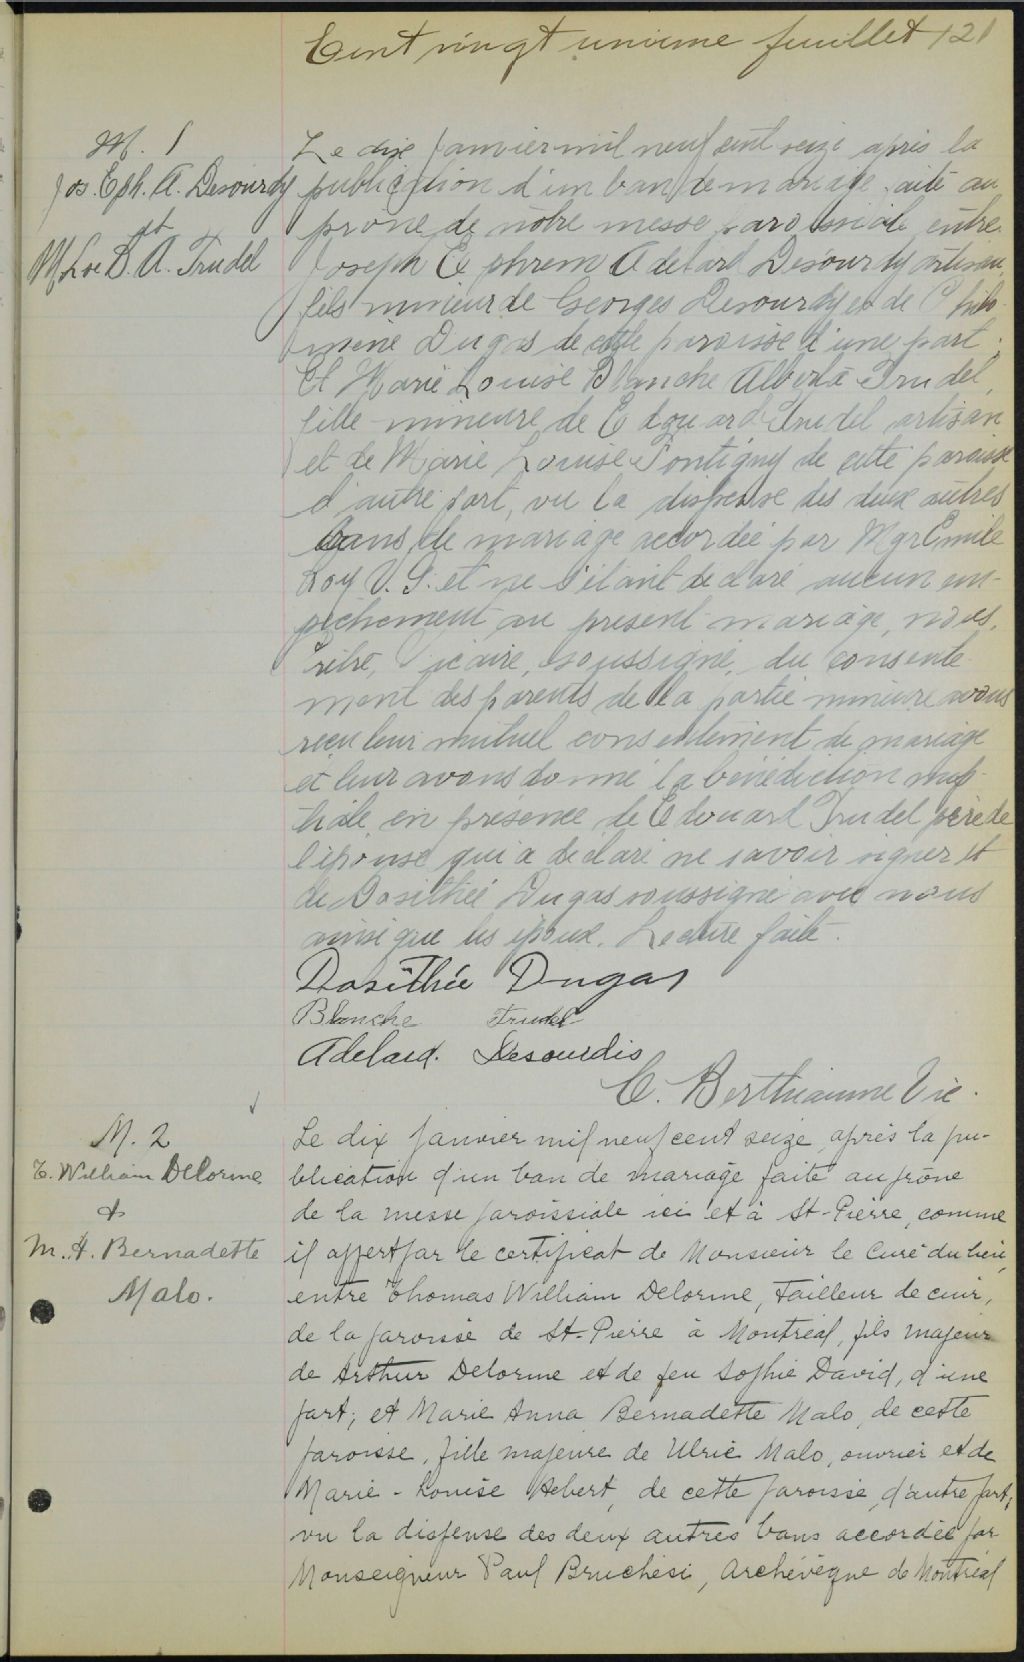 Cent vingt unième feuillet 121
M. 1
Jos. Eph. A. Desourdy
et
M. Lse B. A. Trudel
Le dix Janvier mil neuf cent seize après la
publication d'un ban de mariage faite au
prone de notre messe paroissiale entre
Joseph Ephrem Adelard Desourdy artisan
fils mineur de Georges Desourdy et de Philo-
mène Dugas de cette paroisse d'une part.
Et Marie Louise Blanche Alberta Trudel,
fille mineure de Edouard Trudel artisan
et de Marie Louise Tontigny de cette paroisse
d'autre part, vu la dispense des deux autres
bans de mariage accordée par Mgr Emile
Roy V. G. et ne s'étant declaré aucun em-
pêchement au present mariage, nous,
Prêtre, Vicaire, soussigné, du consente-
ment des parents de la partie mineure avons
reçu leur mutuel consentement de mariage
et leur avons donné la bénédiction nup-
tiale en présence de Edouard Trudel père de
l'épouse qui a déclaré ne savoir signer et
de Dosithée Dugas soussigné avec nous
ainsi que les époux. Lecture faite.
Dosithée Dugas
Blanche Trudel
Adelard. Desourdis
C. Berthiaume Vic.
M. 2
T. William Delorme
&
M. A. Bernadette
Malo.
Le dix janvier mil neuf cent seize, après la pu-
blication d'un ban de mariage faite au prône
de la messe paroissiale ici et à St-Pierre, comme
il appert par le certificat de Monsieur le Curé du lieu,
entre Thomas William Delorme, tailleur de cuir,
de la paroisse de St-Pierre à Montréal, fils majeur
de Arthur Delorme et de feu Sophie David, d'une
part; et Marie Anna Bernadette Malo, de cette
paroisse, fille majeure de Ulric Malo, ouvrier et de
Marie-Louise Hebert, de cette paroisse, d'autre part;
vu la dispense des deux autres bans accordée par
Monseigneur Paul Bruchési, Archévêque de Montréal